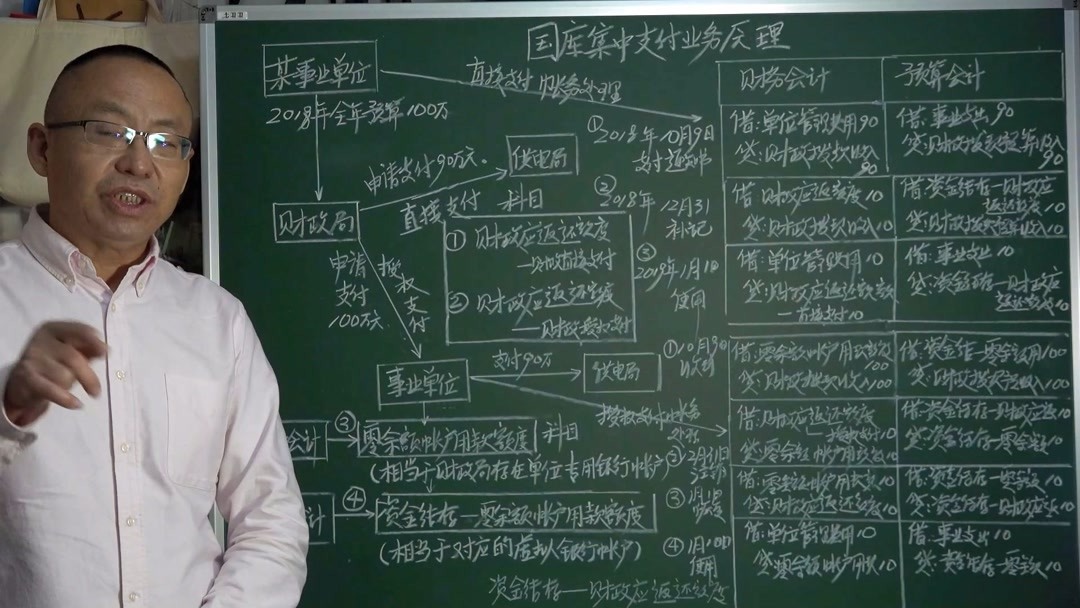 国库集中支付业务原理
某事业单位
2018年全年预算100万
直接支付帐务处理
申请支付90万元
供电局
财政局
直接支付
科目
① 财政应返还额度
—财政直接支付
② 财政应返还额度
—财政授权支付
申请支付100万元
授权支付
事业单位
支付90万
供电局
会计
③
零余额帐户用款额度
科目
(相当于财政局存在单位专用银行帐户)
计
④
资金结存—零余额帐户用款额度
(相当于对应的虚拟银行帐户)
资金结存——财政应返还额度
① 2018年10月9日
支付通知书
② 2018年12月31
补记
③ 2019年1月1日
使用
①10月9日
收到
②12月31日
注销
③1月1日
恢复
④1月10日
使用
财务会计
预算会计
借:单位管理费用 90
贷:财政拨款收入
90
借:事业支出 90
贷:财政拨款预算收入
90
借:财政应返还额度 10
贷:财政拨款收入 10
借:资金结存—财政应
返还额度 10
贷:财政拨款预算收入 10
借:单位管理费用 10
贷:财政应返还额度
—直接支付 10
借:事业支出 10
贷:资金结存—财政应
返还额度 10
借:零余额帐户用款额度
100
贷:财政拨款收入 100
借:资金结存—零余额用100
借:财政应返还额度
—授权支付 10
贷:零余额帐户用款额度 10
借:资金结存—财政应返 10
贷:资金结存—零余额 10
借:零余额帐户用款 10
贷:财政应返还额度 10
借:资金结存—零余额 10
借:单位管理费用 10
贷:零余额帐户用款 10
借:事业支出 10
贷:资金结存—零余额 10